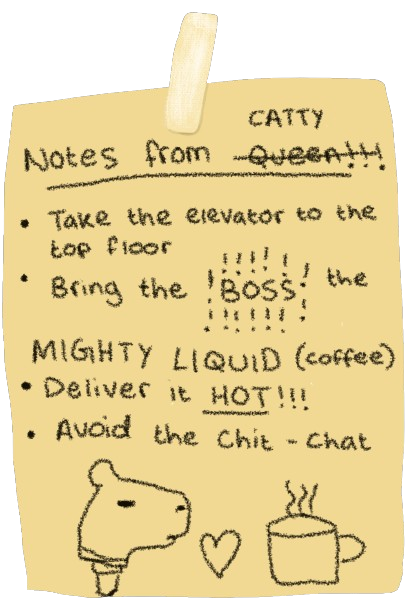 CATTY
Notes from Queen!!!
• Take the elevator to the
top floor
• Bring the !BOSS! the
MIGHTY LIQUID (coffee)
• Deliver it HOT!!!
• Avoid the Chit - Chat